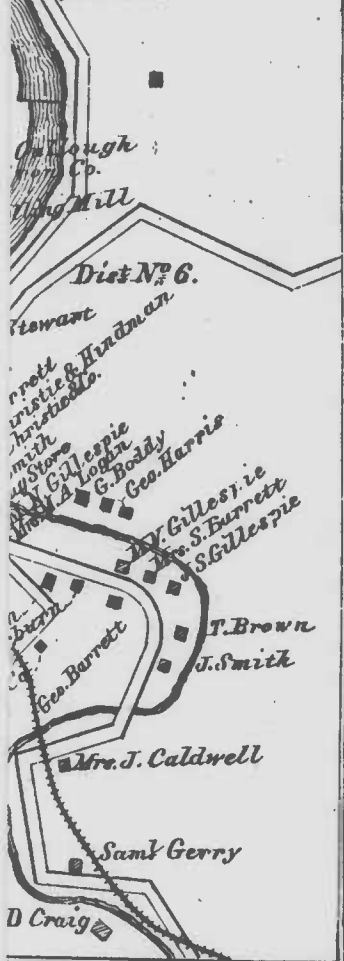 Cullough
ron Co.
lling Mill
Dist. No. 6.
Stewart
rrett
hristie & Hindman
hristie & Co.
mith
ug Store
W. Gillespie
Mrs. M. A. Logan
G. Boddy
Geo. Harris
W. V. Gillespie
Mrs. S. Burrett
J. S. Gillespie
burn
Co.
Geo. Barrett
T. Brown
J. Smith
Mrs. J. Caldwell
Saml. Gerry
D Craig